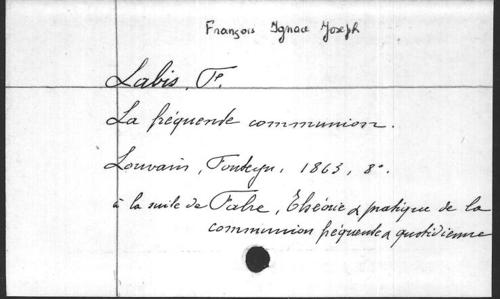 François Ignace Joseph
Labis, F.
La fréquente communion.
Louvain, Fonteyn, 1863, 8°.
à la suite de Fabre, Théorie & pratique de la
communion fréquente & quotidienne